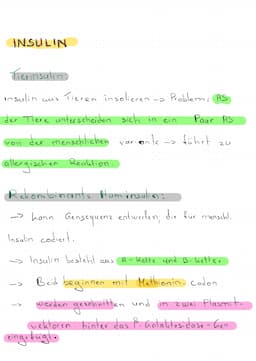 INSULIN
Tierinsulin
Insulin aus Tieren insolieren -> Problem: AS
der Tiere unterscheiden sich in ein Paar AS
von der menschlichen variante -> führt zu
allergischer Reaktion.
Rekombinantes Humaninsulin:
-> kann Gensequenz entwerfen, die für menschl.
Insulin codiert.
-> Insulin besteht aus A-Kette und B-Kette.
-> Beid beginnen mit Methionin. codon
-> werden geschnitten und in zwei Plasmit-
vektoren hinter das β-Galaktosidase-Gen
eingefügt.